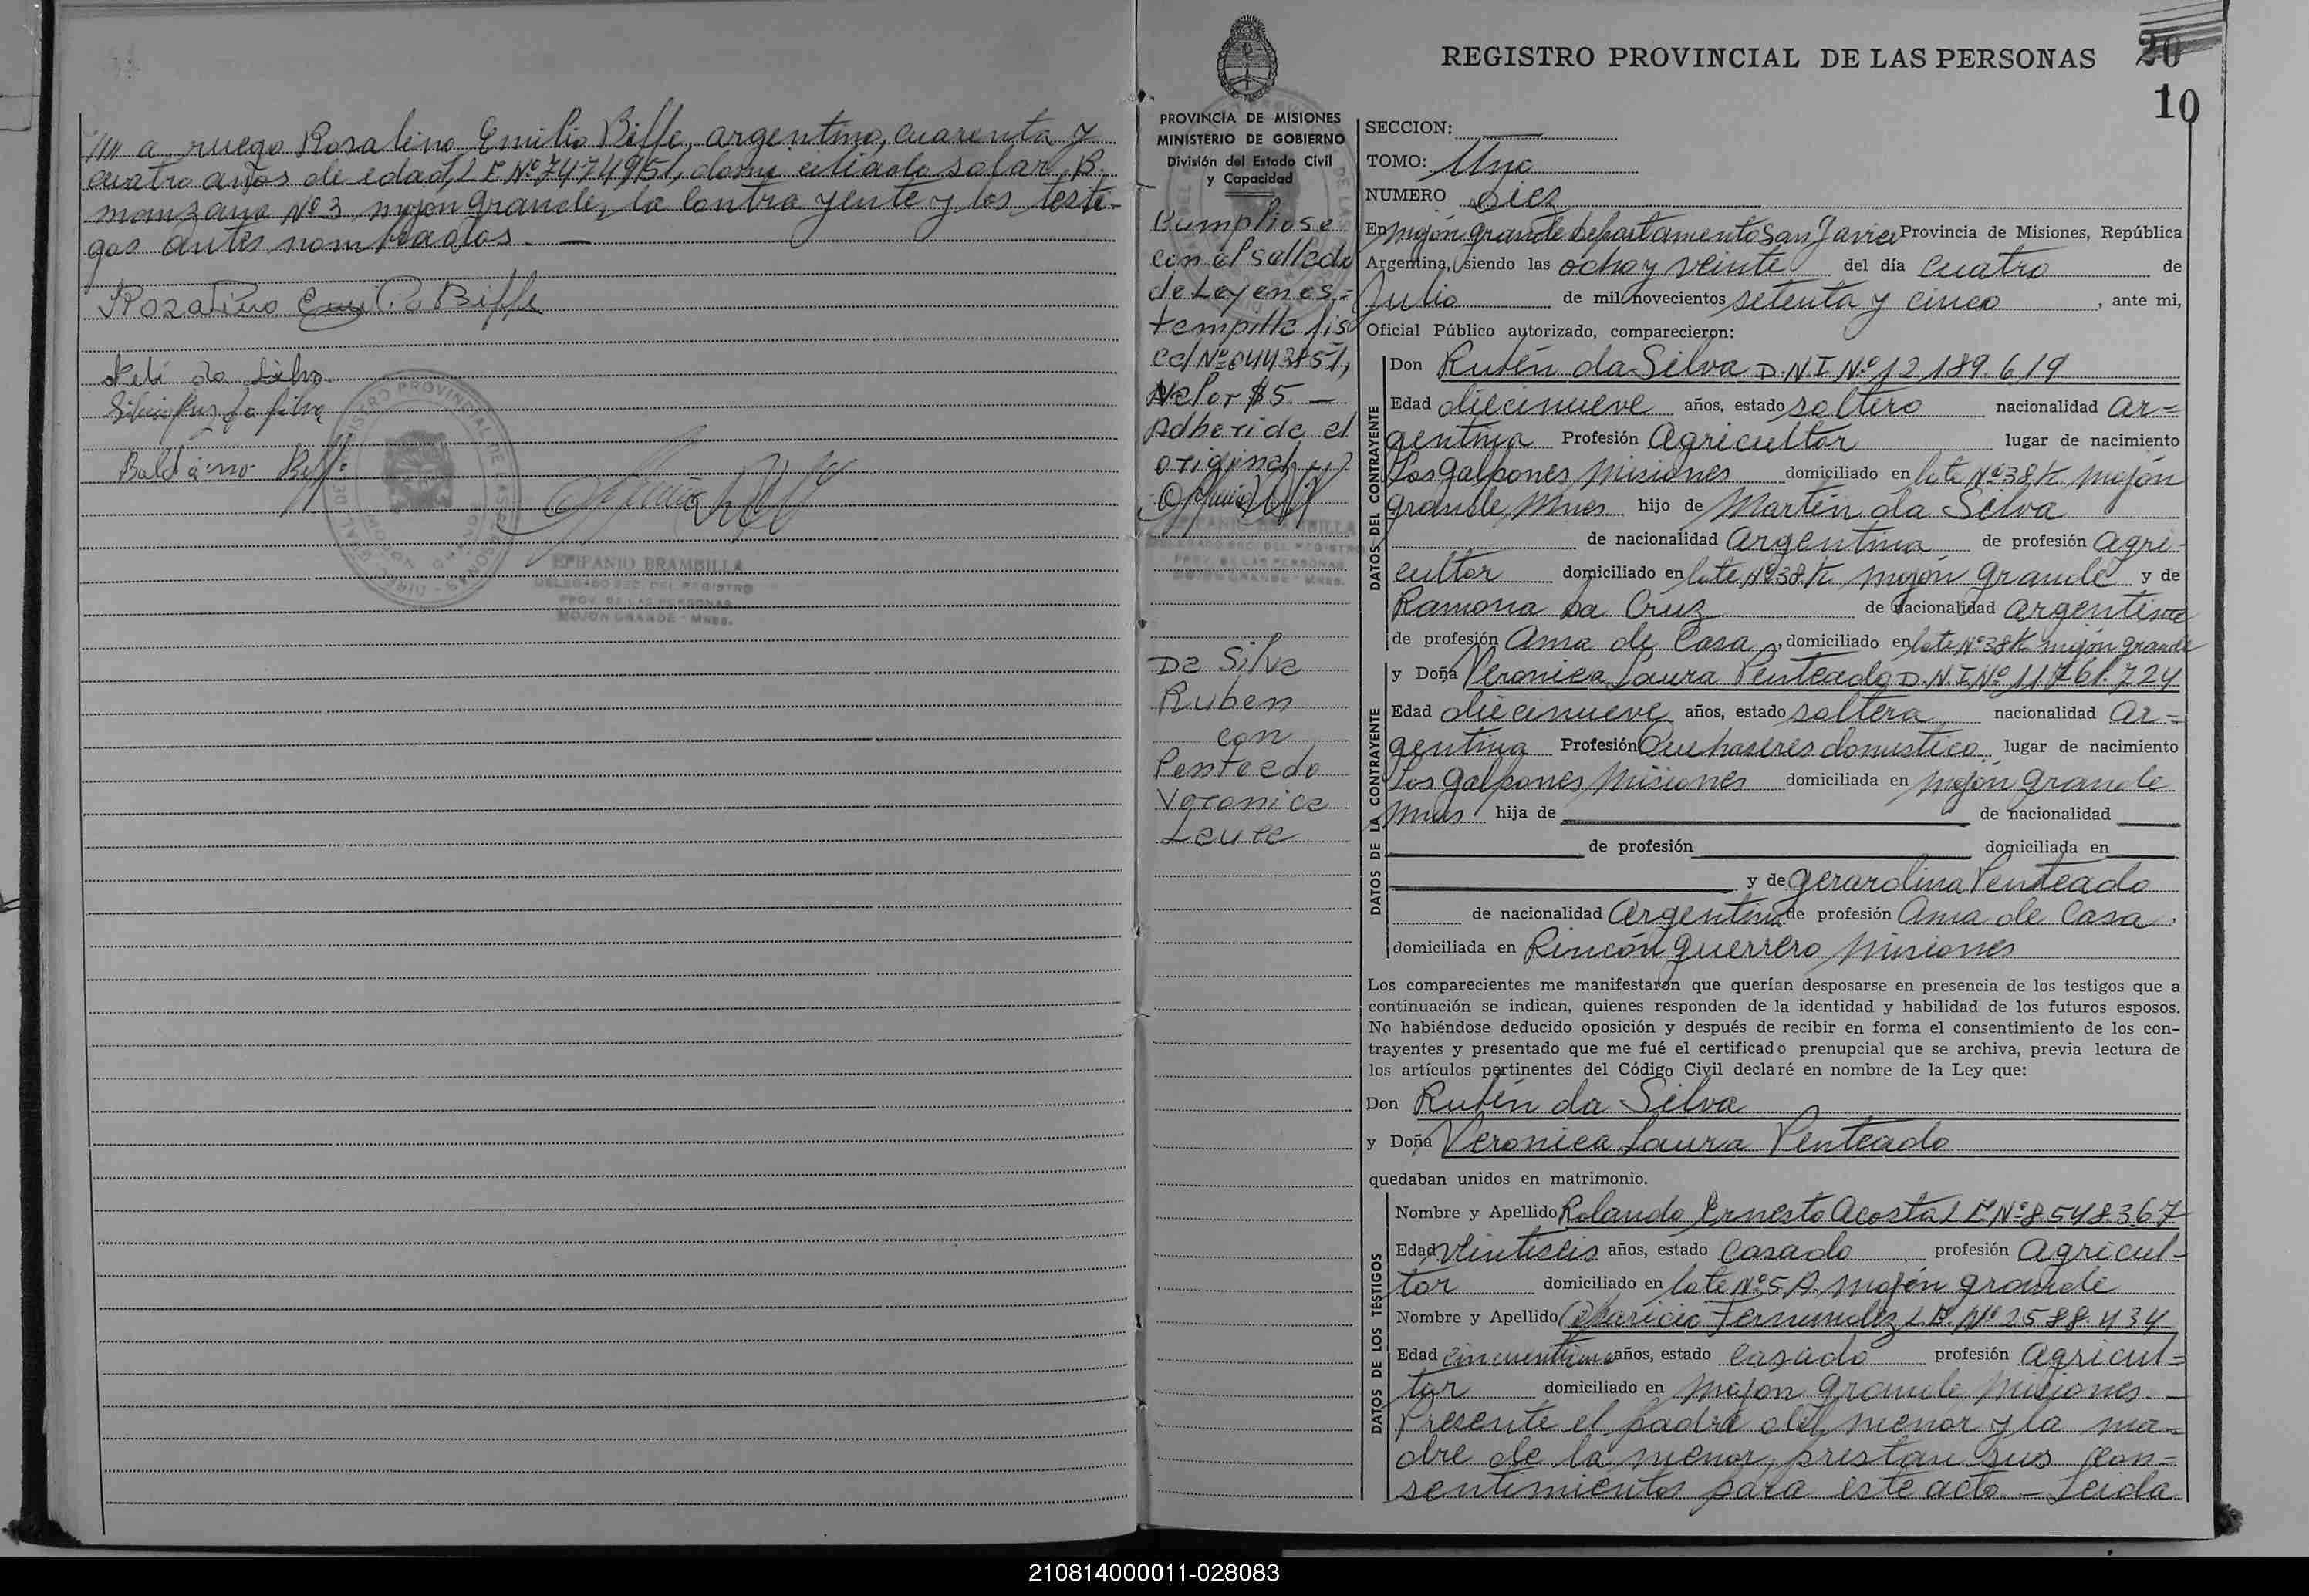 //// a ruego Rosalino Emilio Biffe, argentino, cuarenta y
cuatro años de edad, L E Nº 7474951, domiciliado solar B.
manzana Nº 3 mojon grande, la contrayente y los testi-
gos antes nombrados. —
Rosalino Emilio Biffe
da Silva
da Silva
REGISTRO PROVINCIAL DE LAS PERSONAS
EPIFANIO BRAMBILLA
DELEGADO SEC. DEL REGISTRO
PROV. DE LAS PERSONAS
MOJON GRANDE - MNES.
PROVINCIA DE MISIONES
MINISTERIO DE GOBIERNO
División del Estado Civil
y Capacidad
Cumpliose
con el sellado
de Leyen es-
tampilla fis
cal Nº 0443851,
Valor $5. —
Adherida al
original
EPIFANIO BRAMBILLA
DELEGADO SEC. DEL REGISTRO
PROV. DE LAS PERSONAS
MOJON GRANDE - MNES.
Da Silva
Ruben
con
Penteado
Veronica
Laura
REGISTRO PROVINCIAL DE LAS PERSONAS 20
10
SECCION: —
TOMO: Uno
NUMERO Diez
En Mojón grande Departamento San Javier Provincia de Misiones, República
Argentina, siendo las ocho y veinte del día cuatro de
Julio de mil novecientos setenta y cinco, ante mi,
Oficial Público autorizado, comparecieron:
DATOS DEL CONTRAYENTE
Don Rubén da Silva D.N.I Nº 12189.619
Edad diecinueve años, estado soltero nacionalidad ar=
gentina Profesión Agricultor lugar de nacimiento
Los galpones Misiones domiciliado en lote Nº 38 K mojón
grande, Mnes hijo de Martín da Silva
de nacionalidad Argentina de profesión agri-
cultor domiciliado en lote Nº 38 K mojón grande y de
Ramona Da Cruz de nacionalidad argentina
de profesión Ama de Casa, domiciliado en lote Nº 38 K mojón grande
DATOS DE LA CONTRAYENTE
y Doña Veronica Laura Penteado D.N.I Nº 11761.724
Edad diecinueve años, estado soltera nacionalidad ar=
gentina Profesión Quehaseres domestico lugar de nacimiento
Los galpones Misiones domiciliada en mojón grande
Mnes hija de de nacionalidad
de profesión domiciliada en
y de gerardina Penteado
de nacionalidad Argentina de profesión Ama de Casa,
domiciliada en Rincón guerrero Misiones
Los comparecientes me manifestaron que querían desposarse en presencia de los testigos que a
continuación se indican, quienes responden de la identidad y habilidad de los futuros esposos.
No habiéndose deducido oposición y después de recibir en forma el consentimiento de los con-
trayentes y presentado que me fué el certificado prenupcial que se archiva, previa lectura de
los artículos pertinentes del Código Civil declaré en nombre de la Ley que:
Don Rubén da Silva
y Doña Veronica Laura Penteado
quedaban unidos en matrimonio.
DATOS DE LOS TESTIGOS
Nombre y Apellido Rolando Ernesto Acosta L E Nº 8.548.367
Edad Veintiseis años, estado Casado profesión agricul-
tor domiciliado en lote Nº 5 A. mojón grande
Nombre y Apellido Aparicio Fernandez L E. Nº 2588.434
Edad cincuentiuno años, estado casado profesión agricul=
tor domiciliado en mojon grande Misiones. —
Presente el padre del menor y la ma-
dre de la menor, prestan sus con=
sentimientos para este acto. — Leida
210814000011-028083